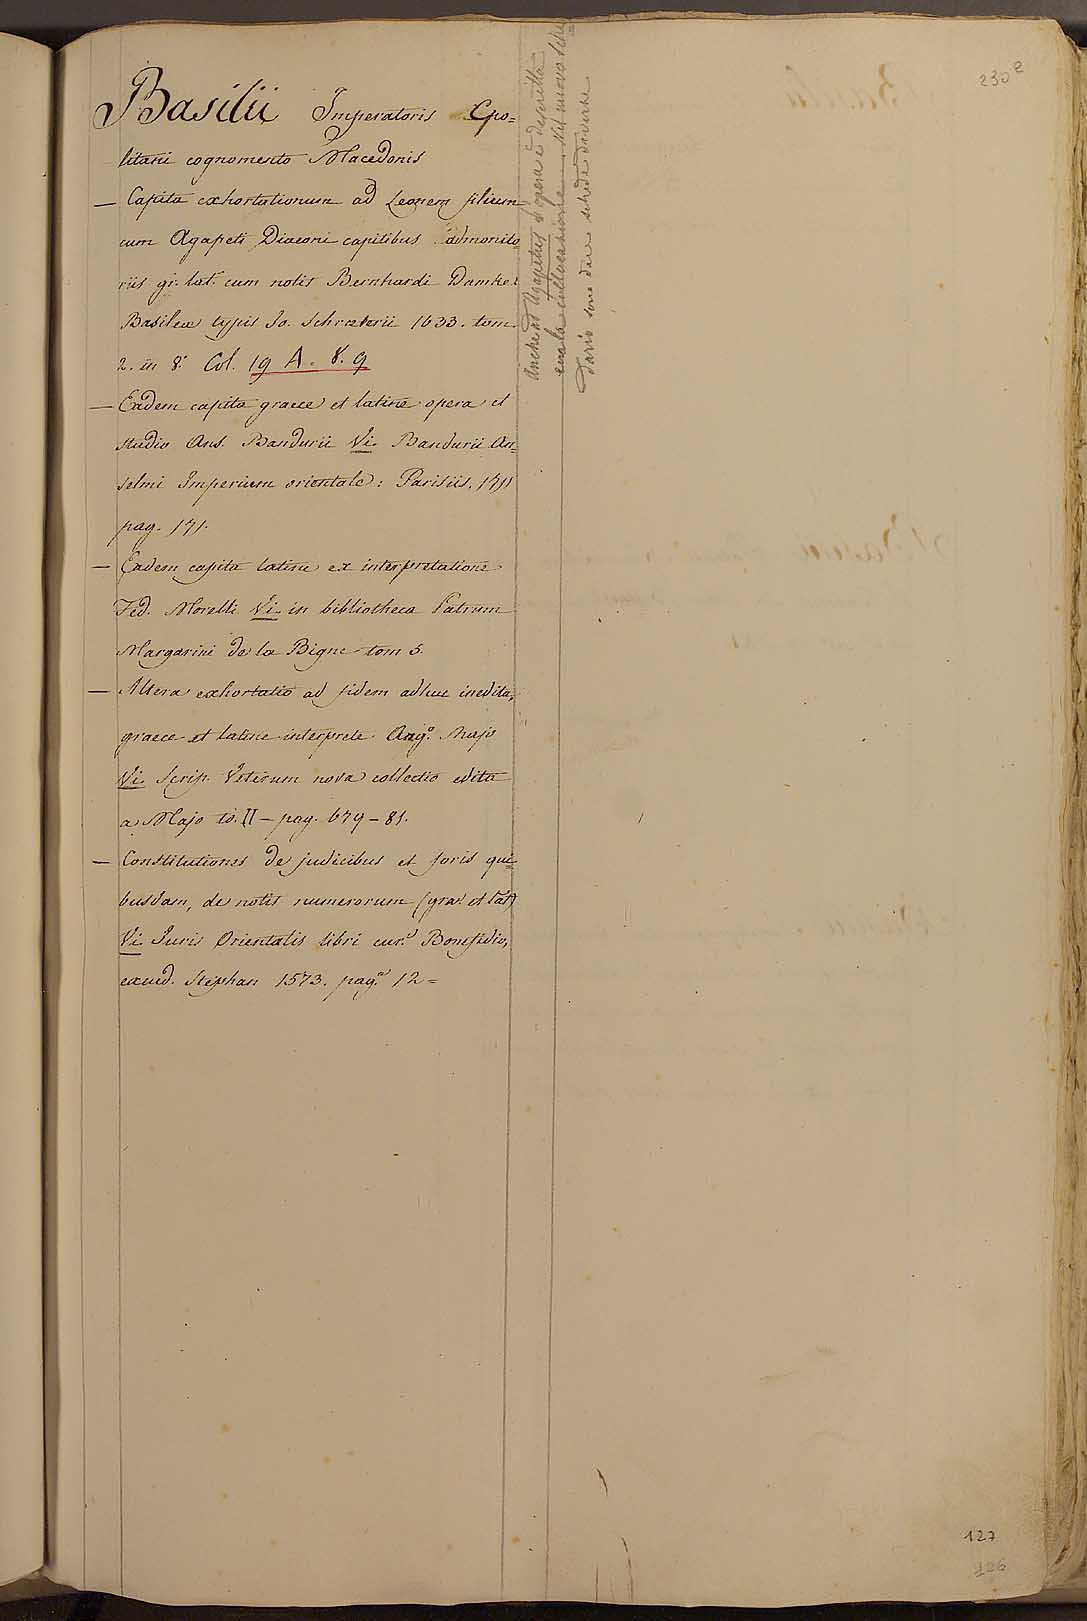 230e
Basilii Imperatoris Cpo=
litani cognomento Macedonis
— Capita exhortationum ad Leonem filium
cum Agapeti Diaconi capitibus admonito
riis gr. lat. cum notis Bernhardi Damke.
Basileae typis Jo. Schroeterii 1633. tom.
2. in 8.º Col. 19 A. 8. 9
— Eadem capita graece et latine opera et
studio Ans. Bandurii Vi. Bandurii An=
selmi Imperium orientale: Parisiis. 1711
pag. 171.
— Eadem capita latine ex interpretatione
Fed. Morelli Vi. in bibliotheca Patrum
Margarini de la Bigne tom 5.
— Altera exhortatio ad fidem adhuc inedita,
graece et latine interprete Ang.º Majo
Vi. Scrip. Veterum nova collectio edita
a Majo to. II — pag. 679 – 81.
— Constitutiones de judicibus et foris qui=
busdam, de notis numerorum (gra. et lat)
Vi. Juris Orientalis libri cur. Bonefidio,
excud. Stephan 1573. pag. 12 =
Anche ad Agapetus l'opera è descritta
colla collocazione. Nel nuovo Sche=
dario sono due schede diverse
127
126